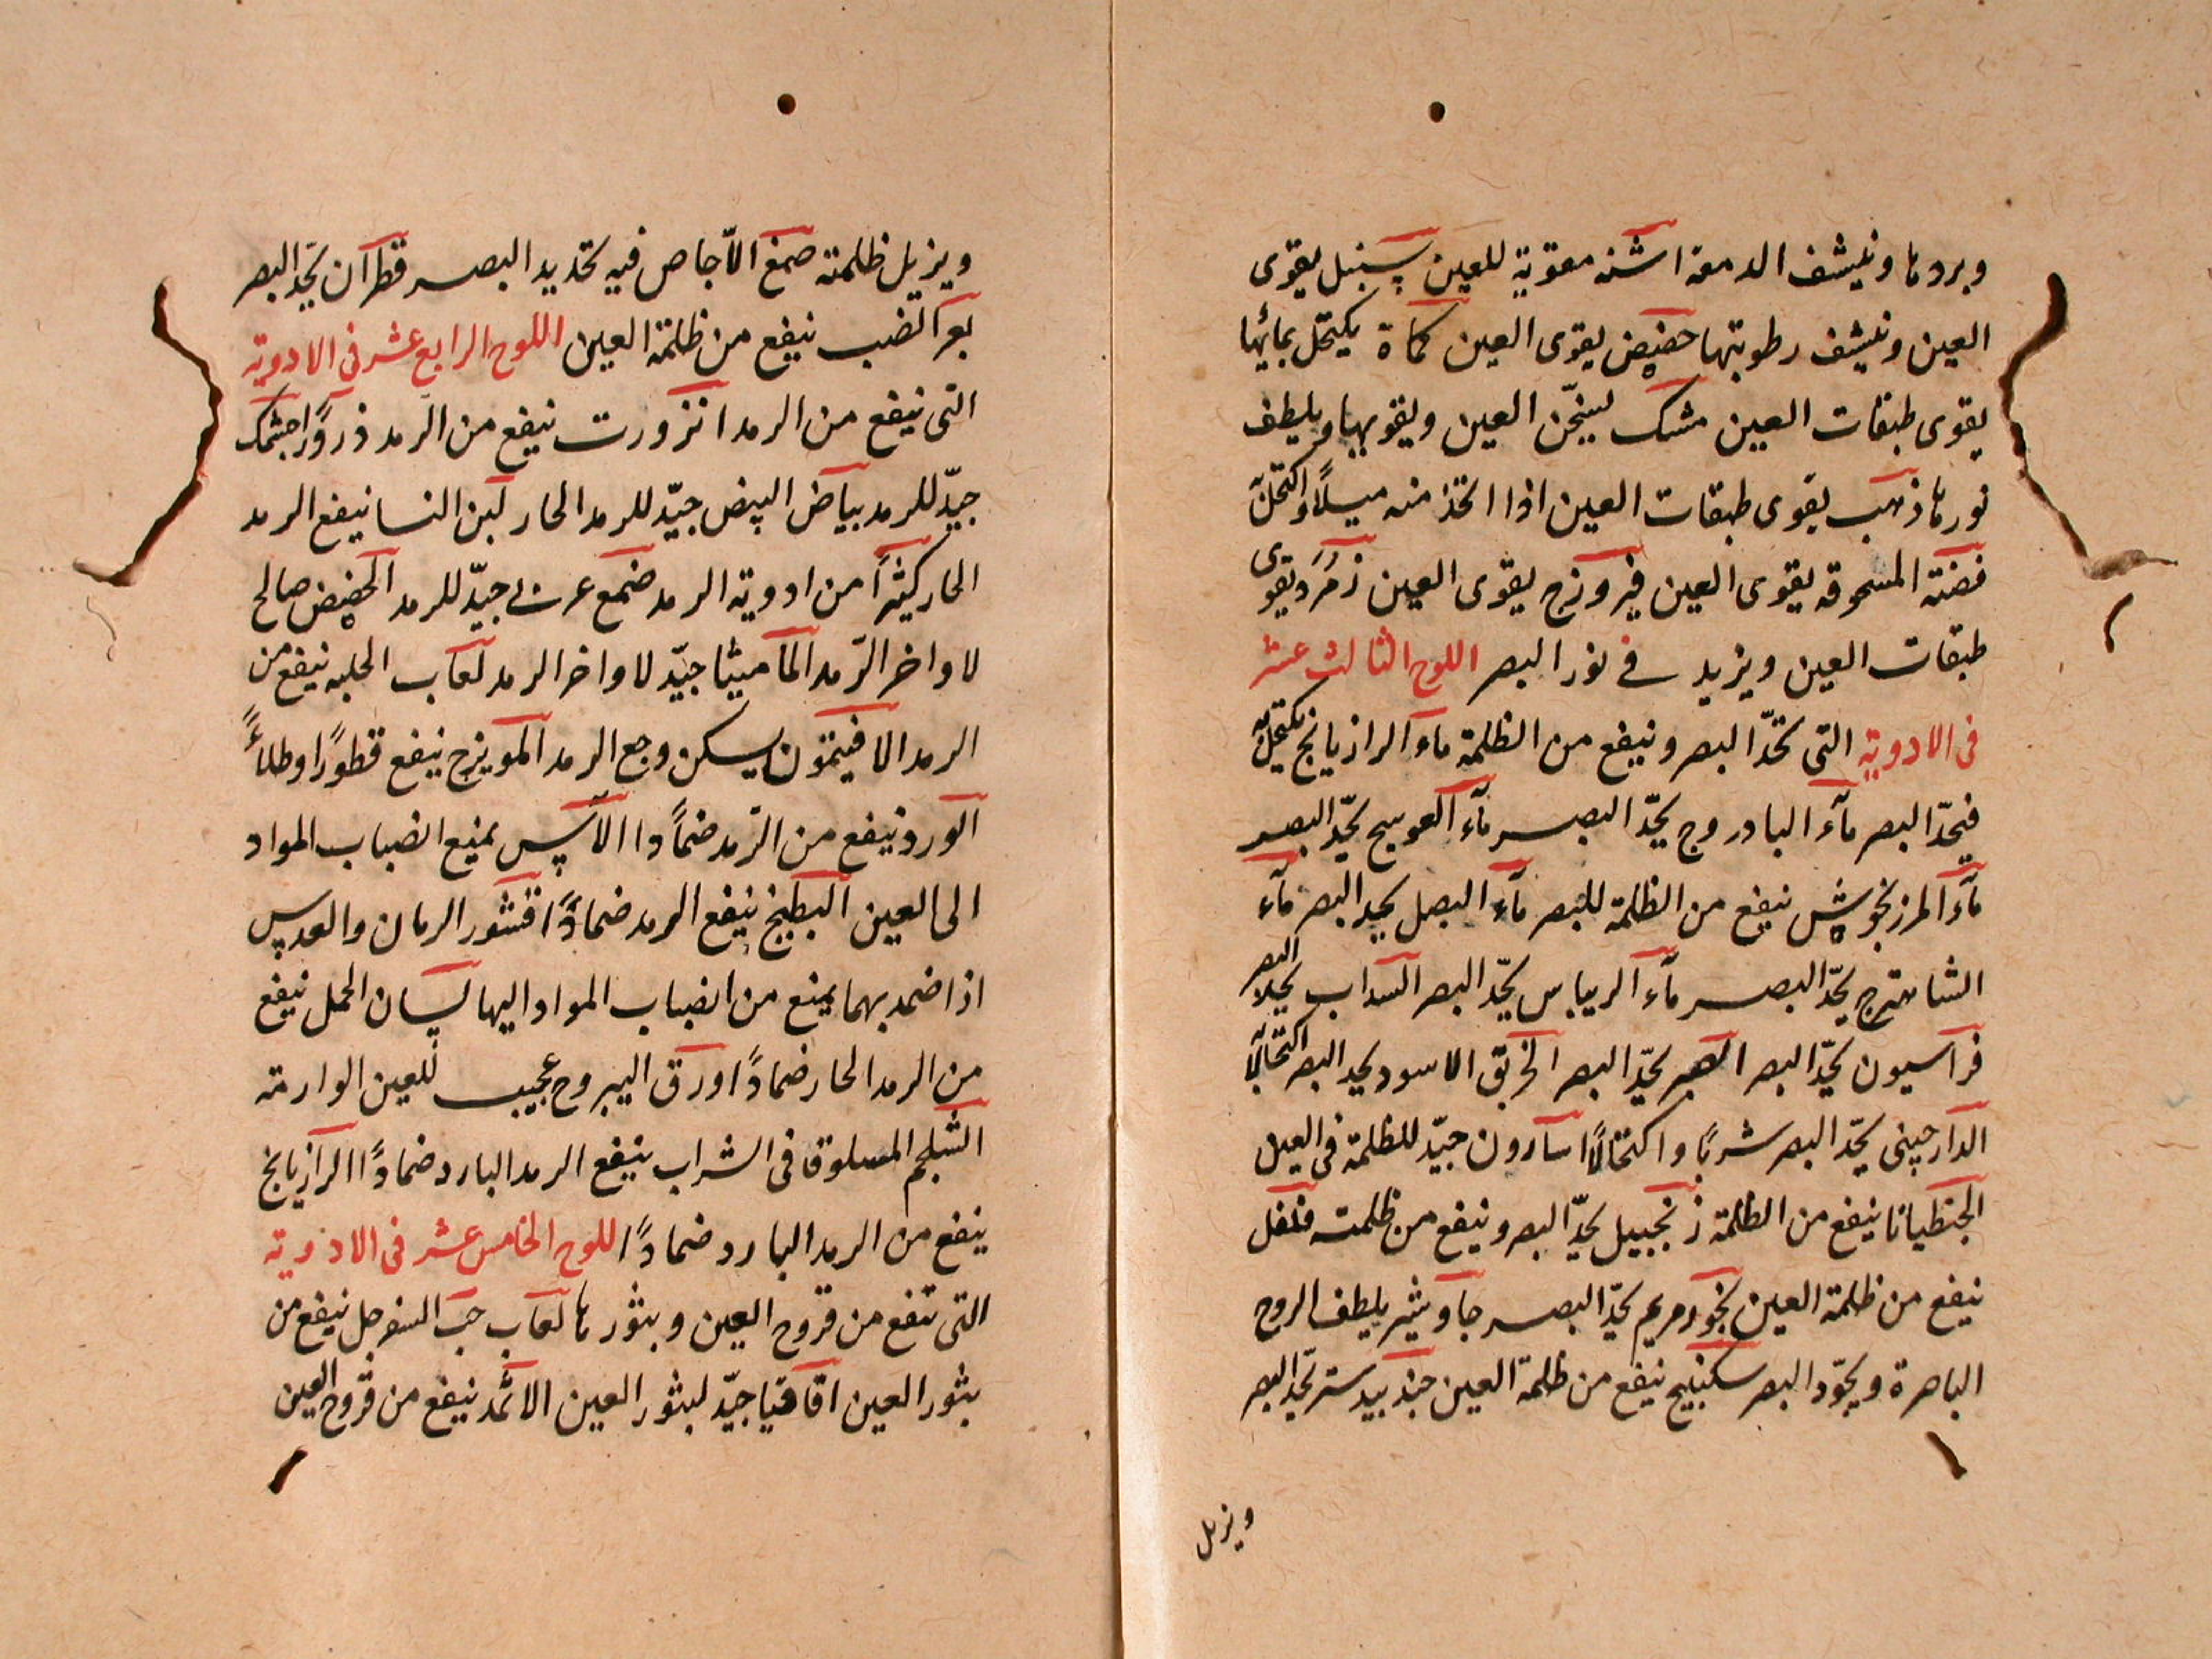 وبردها وينشف الدمعة اشنه مقوية للعين سنبل يقوى
العين وينشف رطوبتها حضيض يقوى العين كماة يكتحل بمائها
يقوى طبقات العين مشك يسخّن العين ويقويها ويلطف
نورها ذهب يقوى طبقات العين اذا اتخذ منه ميلًا واكتحل
فضة المسحوقه يقوى العين فيروزج يقوى العين زمرد يقوى
طبقات العين ويزيد في نور البصر اللوح الثالث عشر
فى الادوية التى تحدّ البصر وينفع من الظلمة ماء الرازيانج يكتحل
فيحدّ البصر مآء البادروج يحدّ البصر مآء العوسج يحدّ البصر
مآء المرزنجوش ينفع من الظلمة للبصر مآء البصل يحد البصر مآء
الشاهترج يحدّ البصر مآء الريباس يحدّ البصر السداب يحد البصر
فراسيون يحدّ البصر الصبر يحدّ البصر الخربق الاسود يحد البصر اكتحالًا
الدارچينى يحدّ البصر شربًا واكتحالًا اسارون جيّد للظلمة فى العين
الجنطيانا ينفع من الظلمة زنجبيل يحدّ البصر وينفع من ظلمته فلفل
ينفع من ظلمة العين بخور مريم يحدّ البصر جاوشير يلطف الروح
الباصرة ويجوّد البصر سكبنيج ينفع من ظلمة العين جندبيدستر يحدّ البصر
ويزيل
ويزيل ظلمته صمغ الاجاص فيه تحديد البصر قطران يحدّ البصر
بعر الضب ينفع من ظلمة العين اللوح الرابع عشر فى الادوية
التى ينفع من الرمد انزورت ينفع من الرمد ذرورًا جشمك
جيّد للرمد بياض البيض جيّد للرمد الحار لبن النسا ينفع الرمد
الحار كثيرًا من ادوية الرمد صمغ عربى جيّد للرمد الحضيض صالح
لاواخر الرمد الماميثا جيّد لاواخر الرمد لعاب الحلبه ينفع من
الرمد الافيتمون يسكن وجع الرمد المويزج ينفع قطورًا وطلاءً
الورد ينفع من الرمد ضمادا الآس يمنع انصباب المواد
الى العين البطيخ ينفع الرمد ضمادًا قشور الرمان والعدس
اذا ضمد بهما يمنع من انصباب المواد اليها لسان الحمل ينفع
من الرمد الحار ضمادًا ورق اليبروح عجيب للعين الوارمة
الشلجم المسلوق فى الشراب ينفع الرمد البارد ضمادًا الرازيانج
ينفع من الرمد البارد ضمادًا اللوح الخامس عشر فى الادوية
التى تنفع من قروح العين وبثورها لعاب حب السفرجل ينفع من
بثور العين اقاقيا جيّد لبثور العين الاثمد ينفع من قروح العين